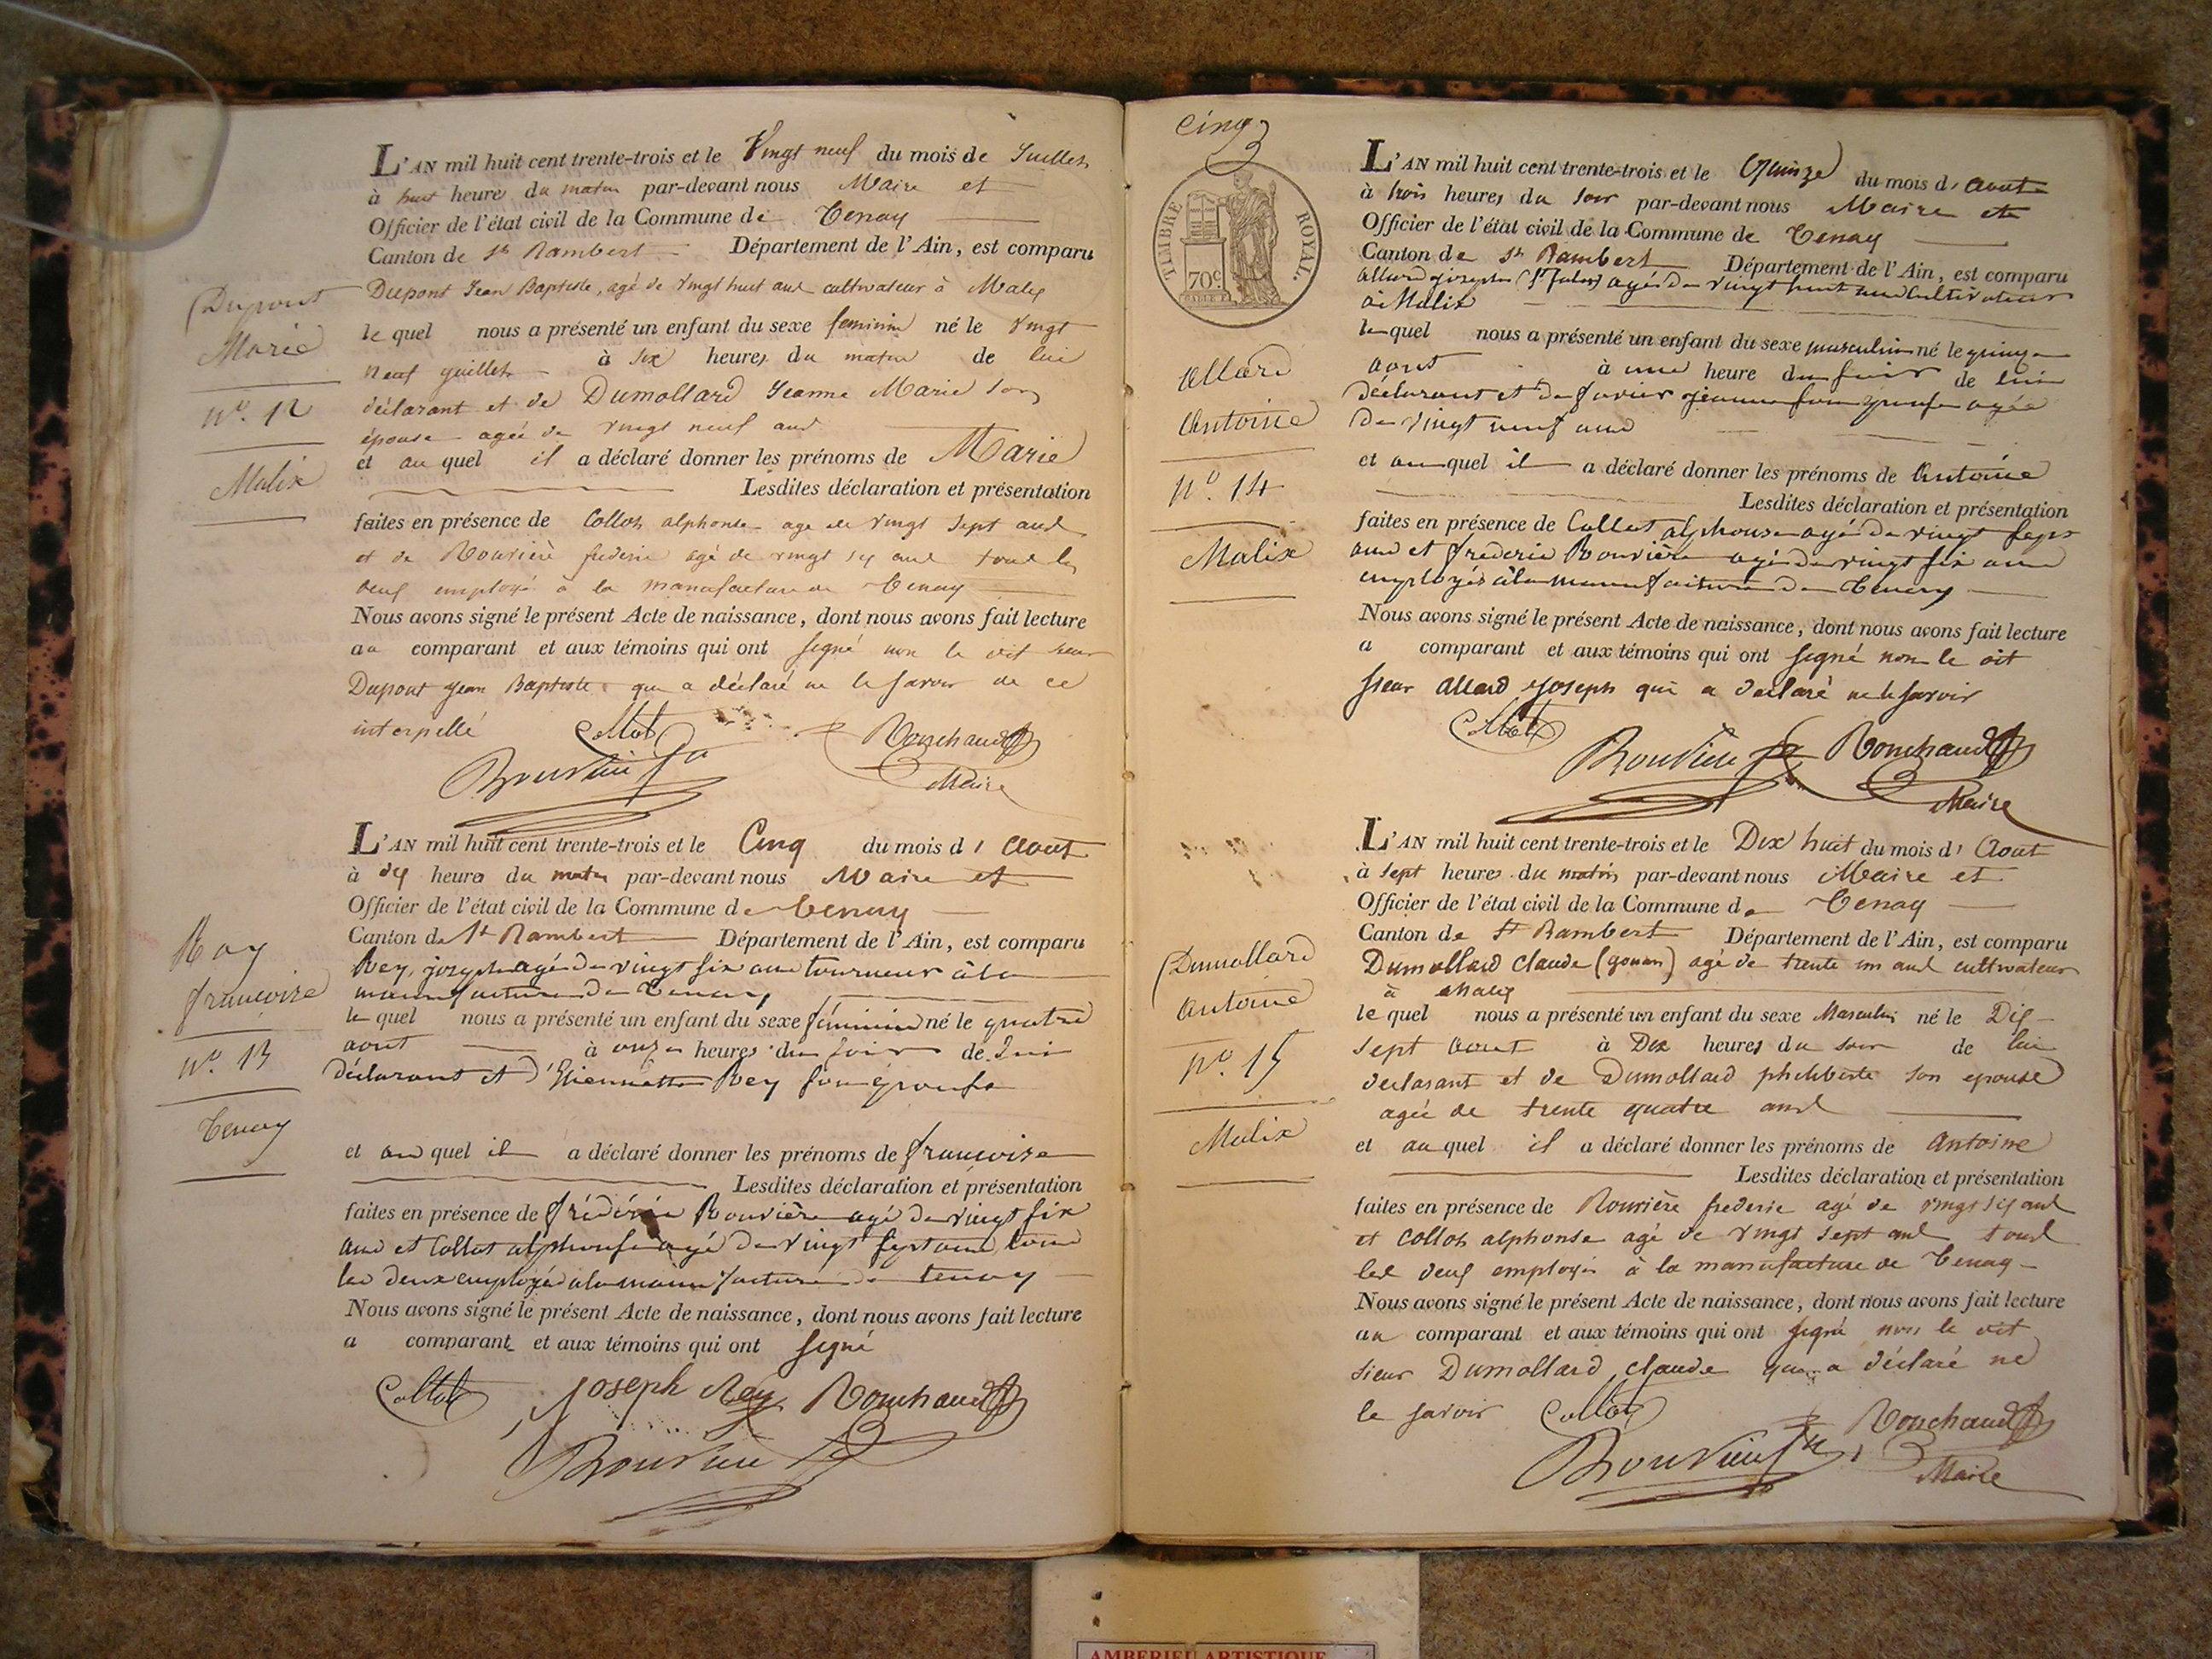 L'AN mil huit cent trente-trois et le Vingt neuf du mois de Juillet
à huit heures du matin par-devant nous Maire et
Officier de l'état civil de la Commune de Tenay
Canton de St Rambert Département de l'Ain, est comparu
Dupont Jean Baptiste, agé de vingt huit ans cultivateur à Malix
le quel nous a présenté un enfant du sexe feminin né le vingt
neuf juillet à six heures du matin de lui
déclarant et de Dumollard Jeanne Marie son
épouse agée de vingt neuf ans
et au quel il a déclaré donner les prénoms de Marie
Lesdites déclaration et présentation
faites en présence de Collot alphonse age de vingt sept ans
et de Rouvière frederic agé de vingt six ans tous les
deux employé à la manufacture de Tenay
Nous avons signé le présent Acte de naissance, dont nous avons fait lecture
au comparant et aux témoins qui ont signé non le dit sieur
Dupont Jean Baptiste qui a déclaré ne le savoir de ce
interpellé
Collot
Rouvière
Ronchaud
Maire
Dupont
Marie
n°. 12
Malix
L'AN mil huit cent trente-trois et le Cinq du mois d' Aout
à dix heures du matin par-devant nous Maire et
Officier de l'état civil de la Commune de Tenay
Canton de St Rambert Département de l'Ain, est comparu
Rey, joseph agé de vingt six ans tourneur à la
manufacture de Tenay
le quel nous a présenté un enfant du sexe féminin né le quatre
aout à onze heures du soir de lui
déclarant et d'Etiennette Rey son épouse
et au quel il a déclaré donner les prénoms de françoise
Lesdites déclaration et présentation
faites en présence de frédéric Rouvière agé de vingt six
ans et Collot alphonse agé de vingt sept ans tous
les deux employés à la manufacture de tenay
Nous avons signé le présent Acte de naissance, dont nous avons fait lecture
a comparant et aux témoins qui ont signé
Collot
Joseph Rey
Ronchaud
Rouvière
Rey
françoise
n°. 13
Tenay
cinq
TIMBRE ROYAL.
70c
L'AN mil huit cent trente-trois et le Quinze du mois d' Aout
à trois heures du soir par-devant nous Maire et
Officier de l'état civil de la Commune de Tenay
Canton de St Rambert Département de l'Ain, est comparu
allard joseph agé de vingt huit ans Cultivateur
à Malix
le quel nous a présenté un enfant du sexe masculin né le quinze
aout à une heure du soir de lui
déclarant et de favier jeanne son épouse agée
de vingt neuf ans
et au quel il a déclaré donner les prénoms de Antoine
Lesdites déclaration et présentation
faites en présence de Collot alphonse agé de vingt sept
ans et frederic Rouvière agé de vingt six ans
employés à la manufacture de Tenay
Nous avons signé le présent Acte de naissance, dont nous avons fait lecture
a comparant et aux témoins qui ont signé non le dit
sieur Allard Joseph qui a declaré ne le savoir
Collot
Rouvière
Ronchaud
Maire
Allard
Antoine
n°. 14
Malix
L'AN mil huit cent trente-trois et le Dix huit du mois d' Aout
à sept heures du matin par-devant nous Maire et
Officier de l'état civil de la Commune de Tenay
Canton de St Rambert Département de l'Ain, est comparu
Dumollard Claude agé de trente un ans cultivateur
à Malix
le quel nous a présenté un enfant du sexe Masculin né le Dix
sept Aout à Dix heures du soir de lui
declarant et de Dumollard philiberte son epouse
agée de trente quatre ans
et au quel il a déclaré donner les prénoms de Antoine
Lesdites déclaration et présentation
faites en présence de Rouvière frederic agé de vingt six ans
et Collot alphonse agé de vingt sept ans tous
les deux employés à la manufacture de Tenay
Nous avons signé le présent Acte de naissance, dont nous avons fait lecture
au comparant et aux témoins qui ont signé non le dit
sieur Dumollard Claude qui a déclaré ne
le savoir
Collot
Rouvière
Ronchaud
Maire
Dumollard
Antoine
n°. 15
Malix
AMBERIEU ARTISTIQUE